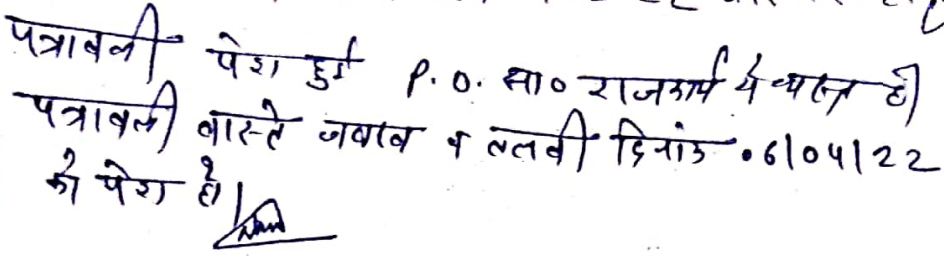 पत्रावली पेश हुई P.O. सा० राजकार्य में व्यस्त है।
पत्रावली वास्ते जवाब व तलवी दिनांक 06/04/22
को पेश हो।